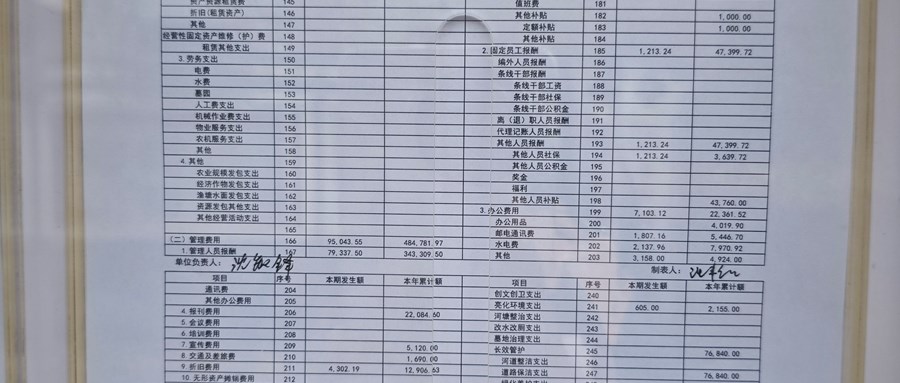 资产资源租赁费 145
折旧(租赁资产) 146
其他 147
经营性固定资产维修(护)费 148
租赁其他支出 149
3.劳务支出 150
电费 151
水费 152
墓园 153
人工费支出 154
机械作业费支出 155
物业服务支出 156
农机服务支出 157
其他 158
4.其他 159
农业规模发包支出 160
经济作物发包支出 161
渔塘水面发包支出 162
资源发包其他支出 163
其他经营活动支出 164
165
(二)管理费用 166 95,043.55 484,781.97
1.管理人员报酬 167 79,337.50 343,309.50
值班费 181
其他补贴 182 1,000.00
定额补贴 183 1,000.00
其他补贴 184
2.固定员工报酬 185 1,213.24 47,399.72
编外人员报酬 186
条线干部报酬 187
条线干部工资 188
条线干部社保 189
条线干部公积金 190
离(退)职人员报酬 191
代理记账人员报酬 192
其他人员报酬 193 1,213.24 47,399.72
其他人员社保 194 1,213.24 3,639.72
其他人员公积金 195
奖金 196
福利 197
其他人员补贴 198 43,760.00
3.办公费用 199 7,103.12 22,361.52
办公用品 200 4,019.90
邮电通讯费 201 1,807.16 5,446.70
水电费 202 2,137.96 7,970.92
其他 203 3,158.00 4,924.00
单位负责人:
制表人:
项目 序号 本期发生额 本年累计额
通讯费 204
其他办公费用 205
4.报刊费用 206 22,084.60
5.会议费用 207
6.培训费用 208
7.宣传费用 209 5,120.00
8.交通及差旅费 210 1,690.00
9.折旧费用 211 4,302.19 12,906.63
10.无形资产摊销费用 212
项目 序号 本期发生额 本年累计额
创文创卫支出 240
亮化环境支出 241 605.00 2,155.00
河塘整治支出 242
改水改厕支出 243
墓地治理支出 244
长效管护 245 76,840.00
河道整洁支出 246
道路保洁支出 247 76,840.00